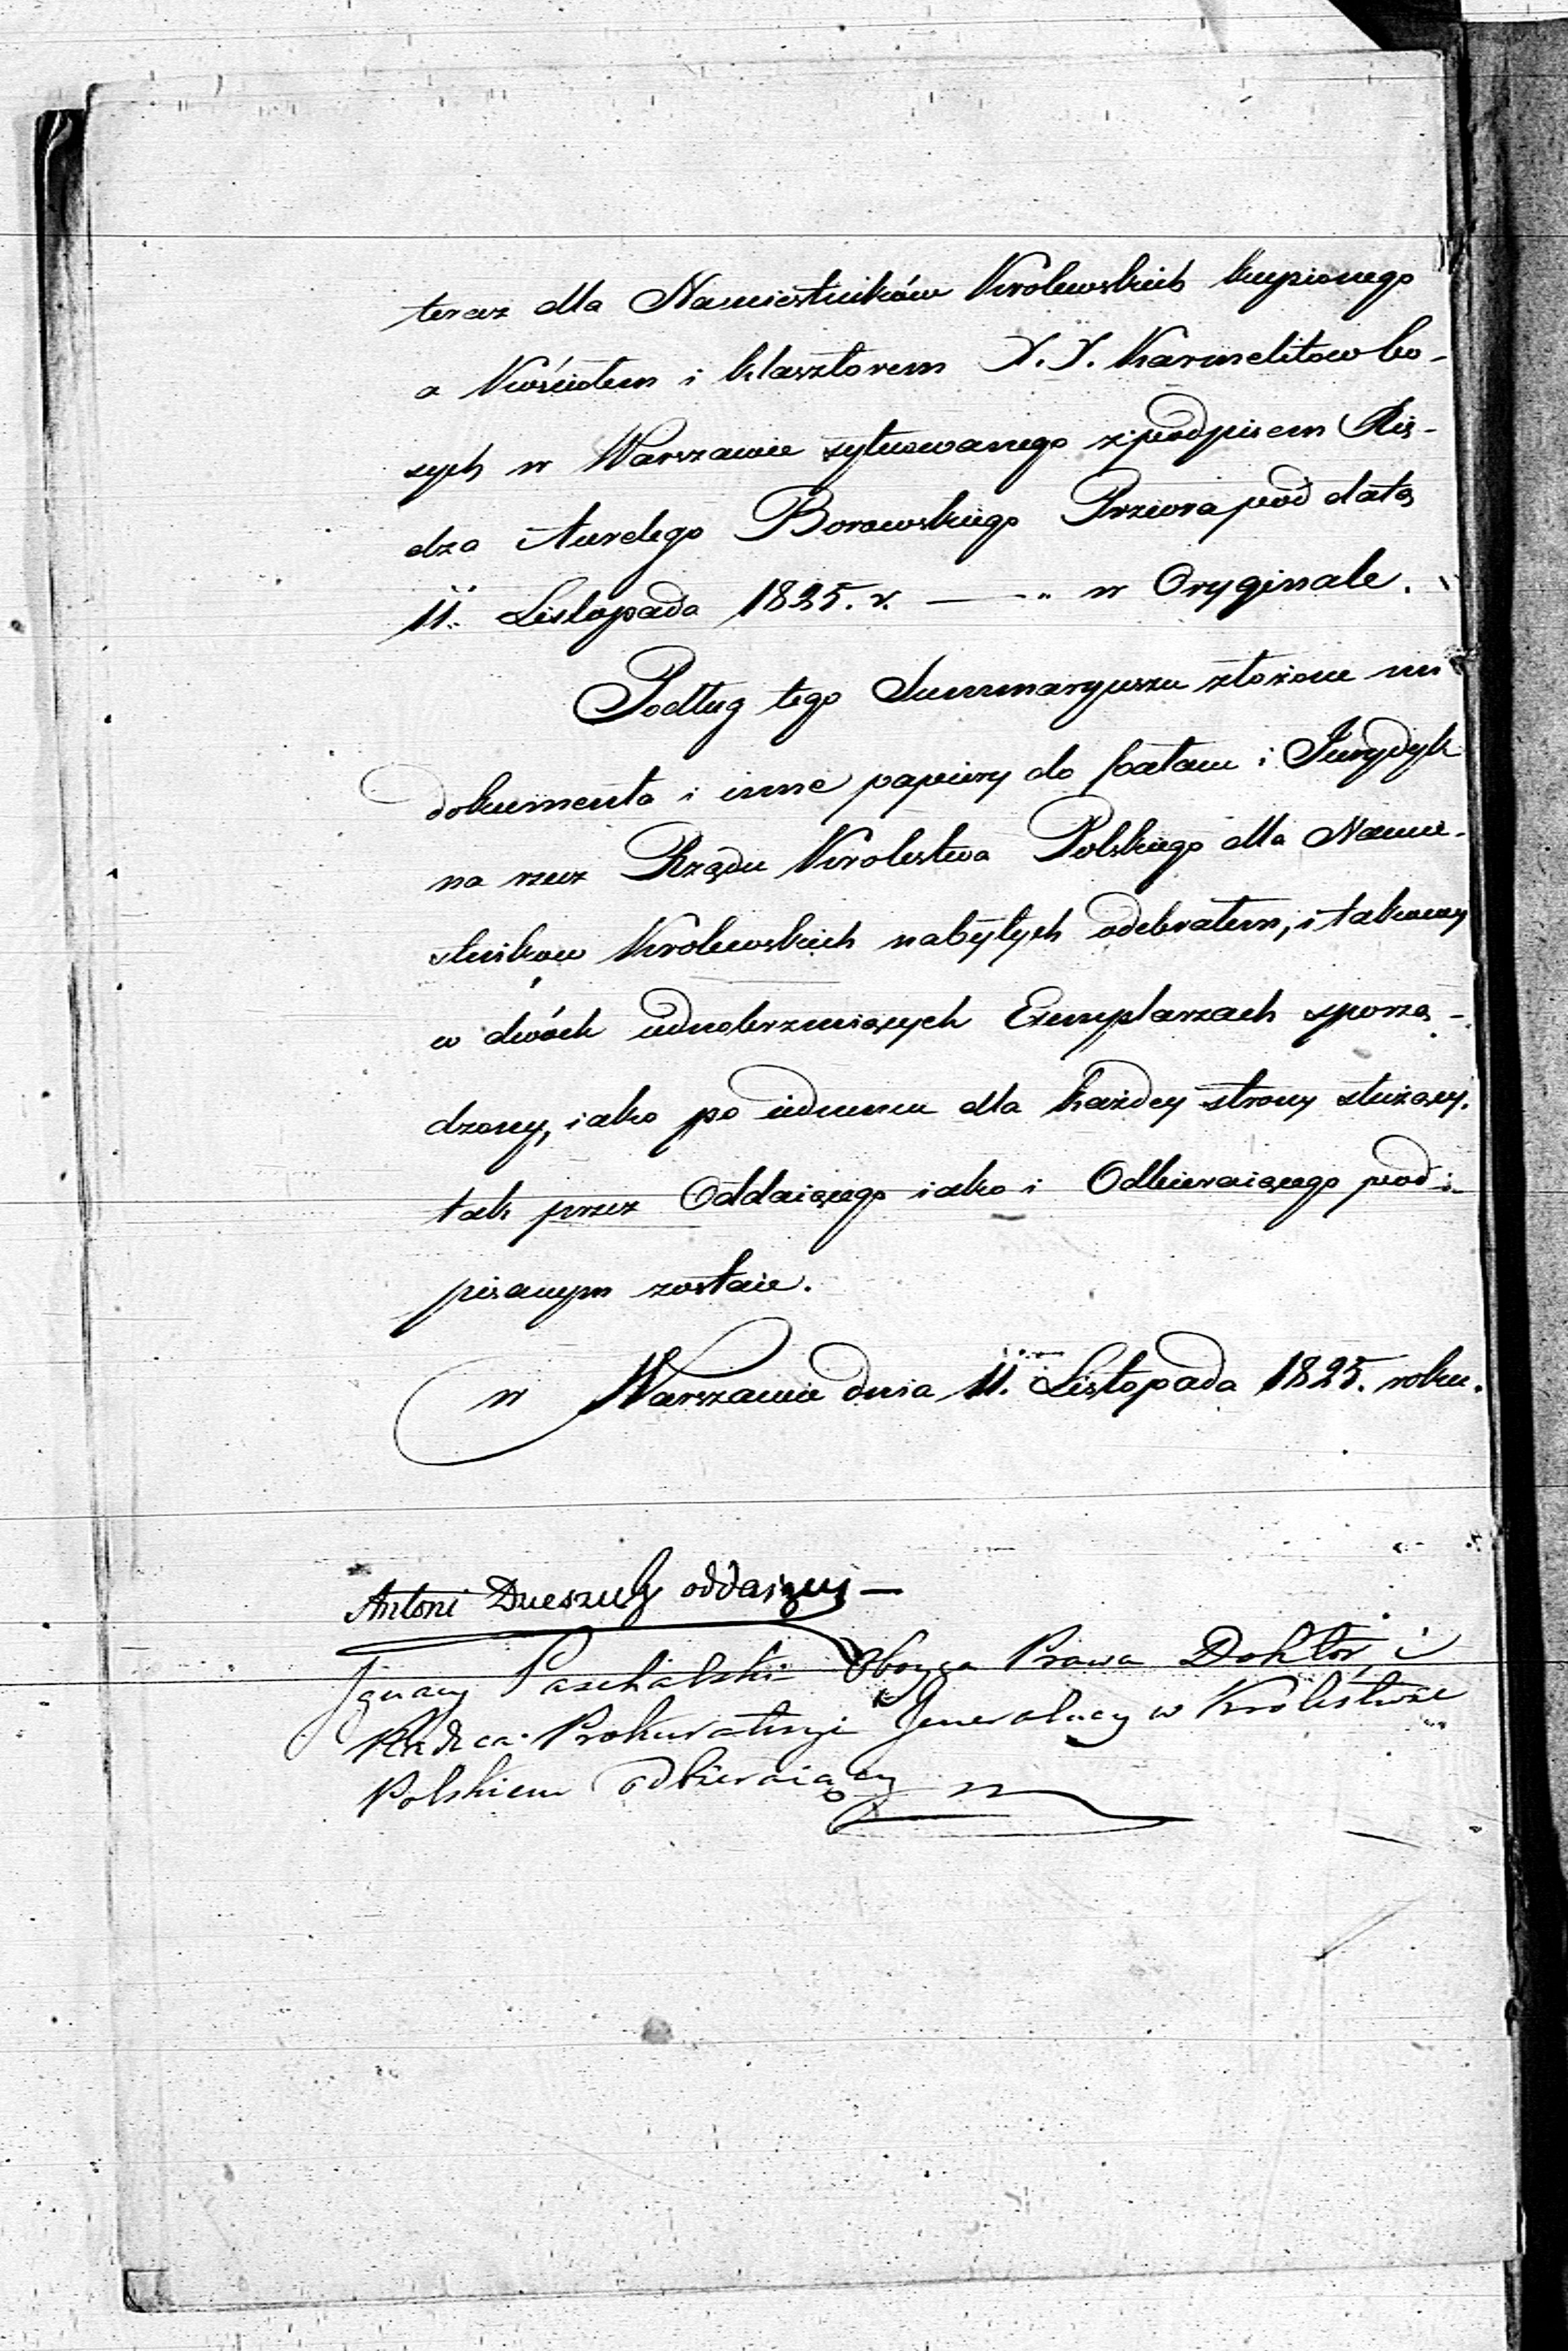 teraz dla Namiestników Krolewskich kupionego
a Kościołem i klasztorem X. X. Karmelitow bo-
sych w Warszawie sytuowanego z podpisem Xię-
dza Aurelego Borowskiego Przeora pod datą
11. Listopada 1825. r. — „ w Oryginale.
Podług tego Summaryuszu złożone mi
dokumenta i inne papiery do pałacu i Jurydyk
na rzecz Rządu Krolestwa Polskiego dla Namie-
stnikow Krolewskich nabytych odebrałem, i takowy
w dwóch iednobrzmiących Exemplarzach sporzą-
dzony, iako po iednemu dla każdey strony służący,
tak przez Oddaiącego iako i Odbieraiącego pod-
pisanym zostaie.
w Warszawie dnia 11. Listopada 1825. roku.
Antoni oddaiący —
Ignacy Paschalski Oboyga Prawa Doktor, i
Radca Prokuratoryi Jeneralney w Królestwie
Polskiem odbieraiący